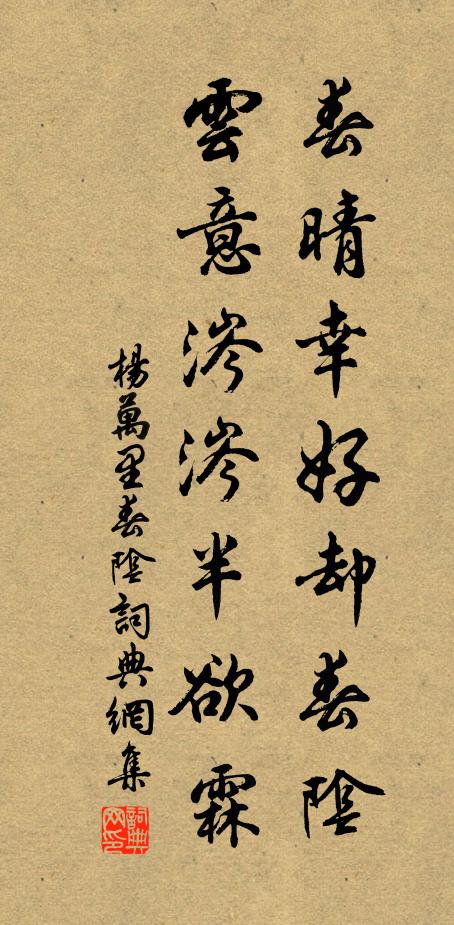 春晴幸好却春陰
雲意涔涔半欲霖
楊萬里春陰詞典網集
詞典網印